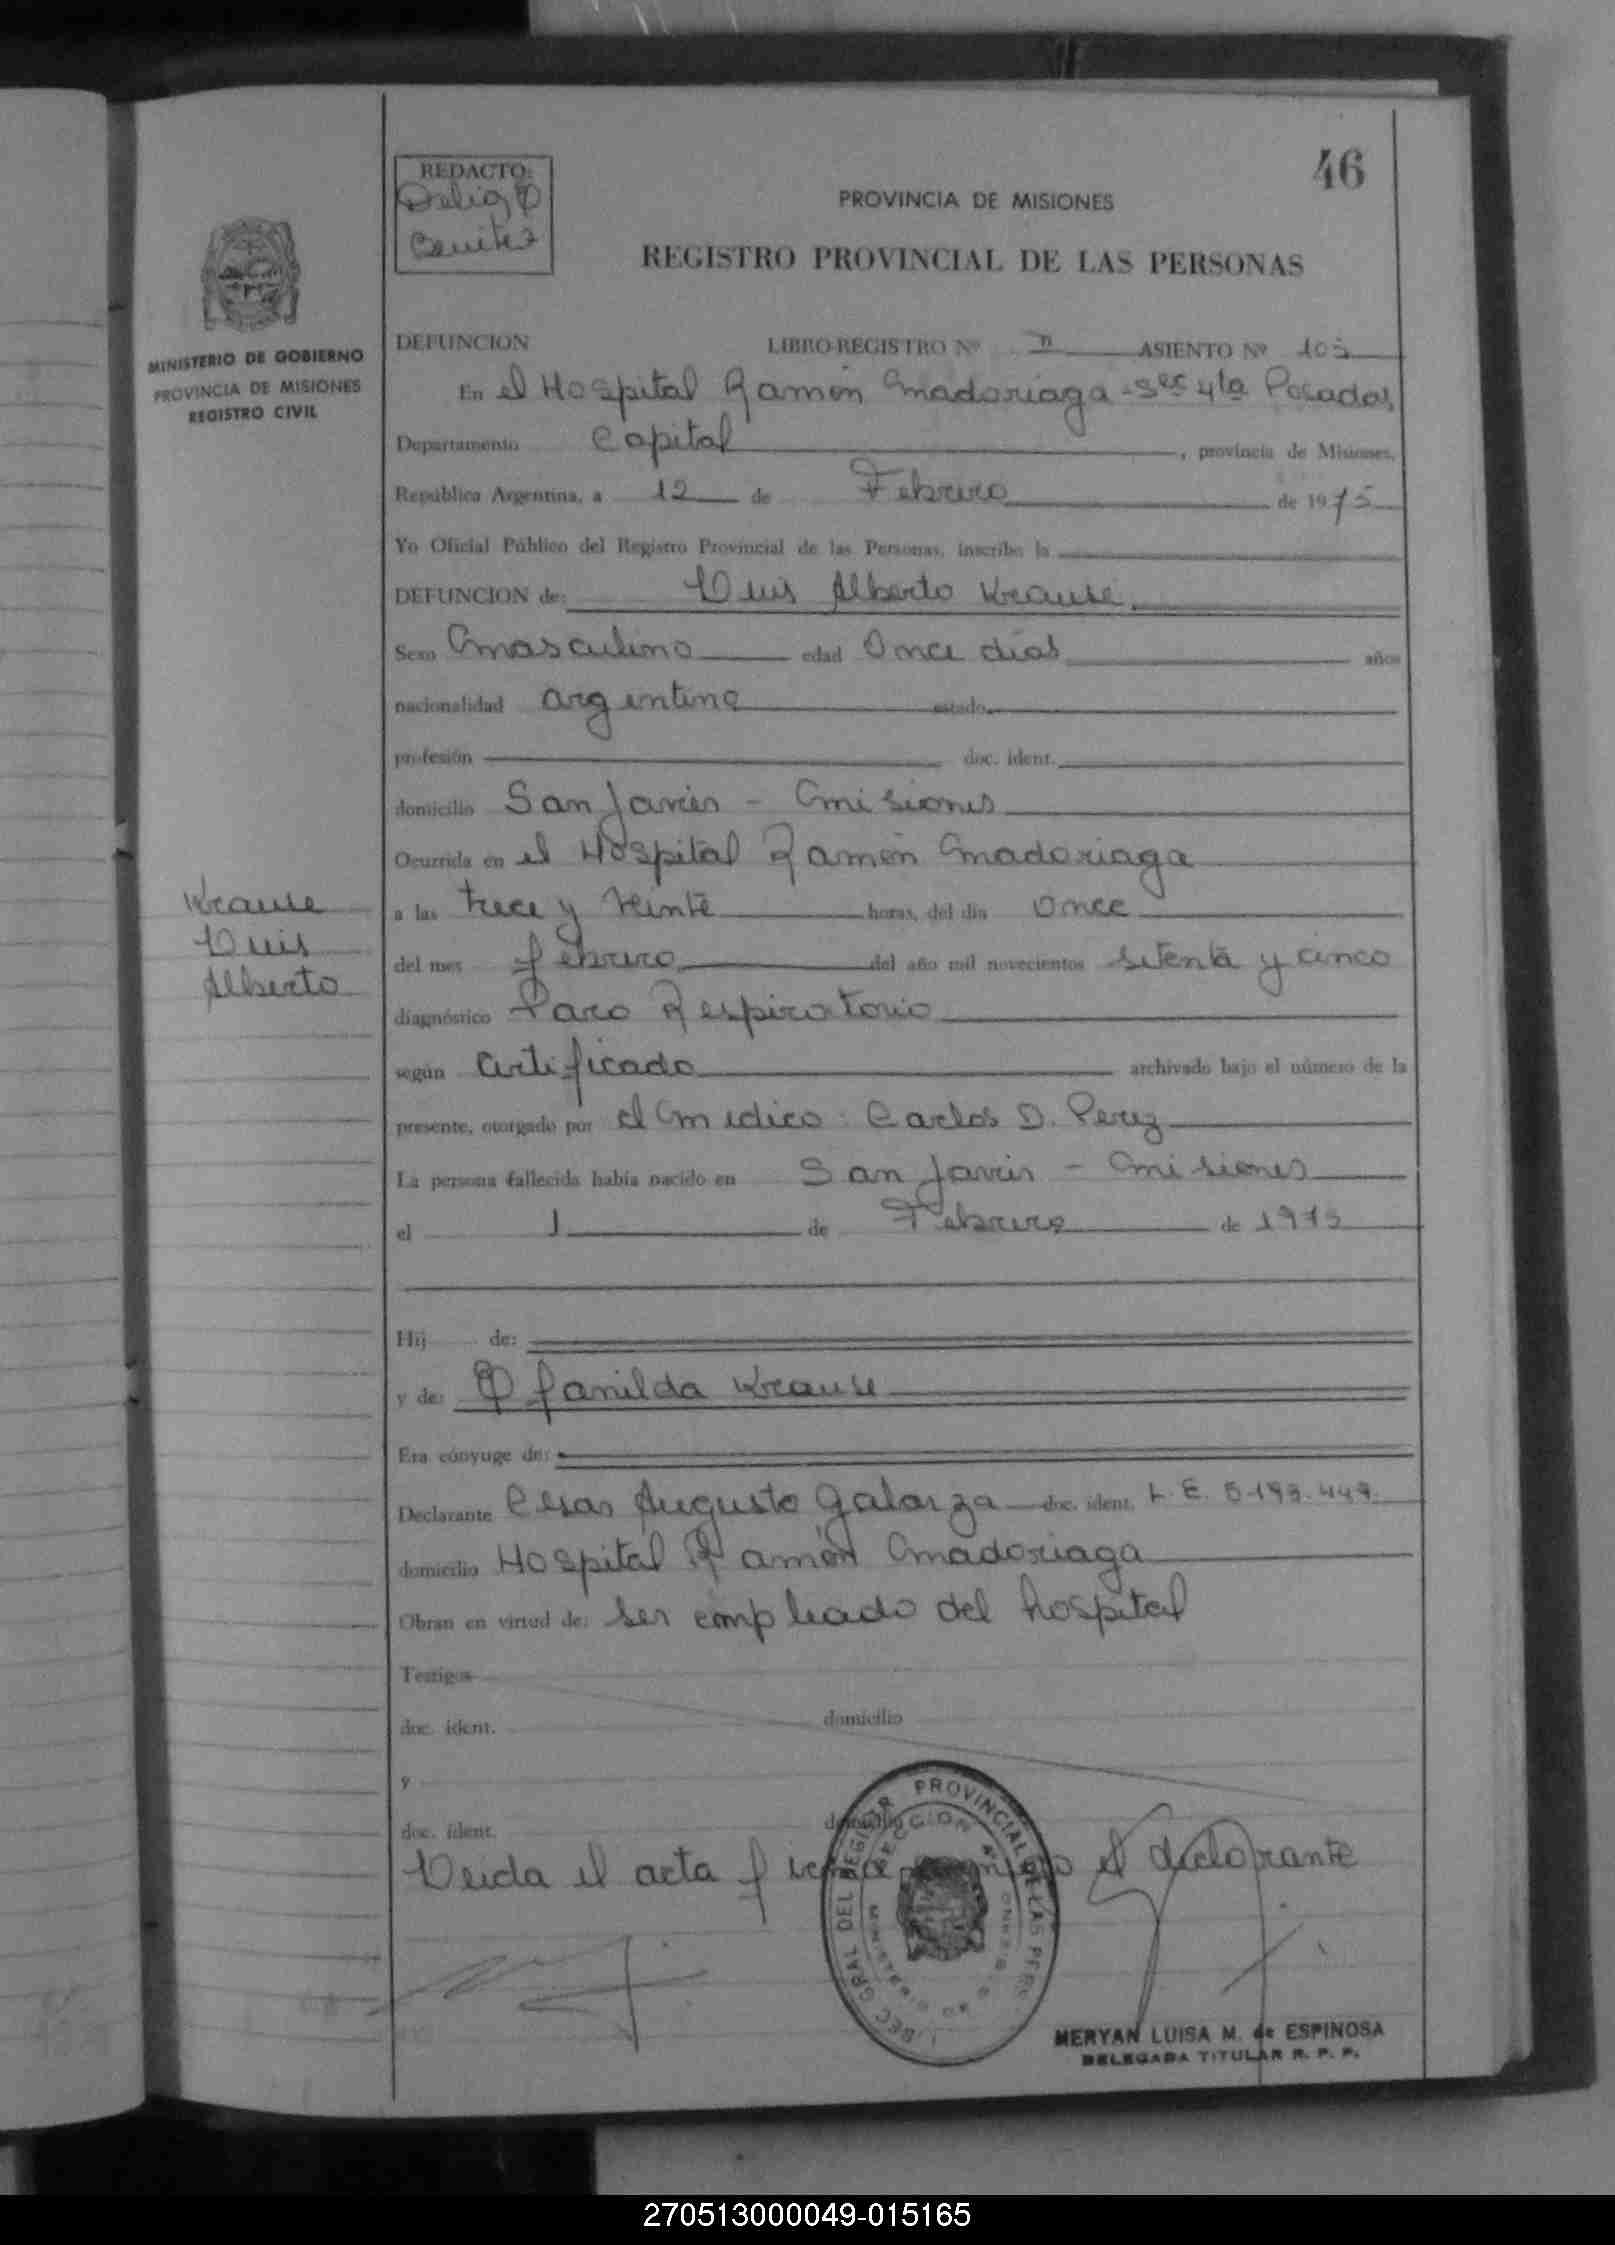 46
REDACTO:
Delia
Benitez
PROVINCIA DE MISIONES
REGISTRO PROVINCIAL DE LAS PERSONAS
MINISTERIO DE GOBIERNO
PROVINCIA DE MISIONES
REGISTRO CIVIL
DEFUNCION LIBRO-REGISTRO Nº II ASIENTO Nº 105
En el Hospital Ramón Madoriaga - Sec 4ta Posadas,
Departamento Capital, provincia de Misiones,
República Argentina, a 12 de Febrero de 1975
Yo Oficial Público del Registro Provincial de las Personas, inscribo la
DEFUNCION de: Luis Alberto Krause
Sexo Masculino edad Once días años
nacionalidad argentina estado
profesión doc. ident.
domicilio San Javier - Misiones
Ocurrida en el Hospital Ramón Madoriaga
Krause
Luis
Alberto
a las trece y veinte horas, del día Once
del mes febrero del año mil novecientos setenta y cinco
diagnóstico Paro Respiratorio
según certificado archivado bajo el número de la
presente, otorgado por el medico: Carlos D. Perez
La persona fallecida había nacido en San Javier - Misiones
el 1 de Febrero de 1975
Hij de:
y de: Ofanilda Krause
Era cónyuge de:
Declarante Cesar Augusto Galarza doc. ident. L. E. 5.193.449.
domicilio Hospital Ramón Madoriaga
Obran en virtud de: ser empleado del hospital
Testigos
doc. ident. domicilio
y
doc. ident. domicilio
Leida el acta firma conmigo el declarante
SEC. GRAL DEL REGISTR PROVINCIAL DE LAS PERS.
SECCION 4ª
MERYAN LUISA M. de ESPINOSA
DELEGADA TITULAR R. P. P.
270513000049-015165